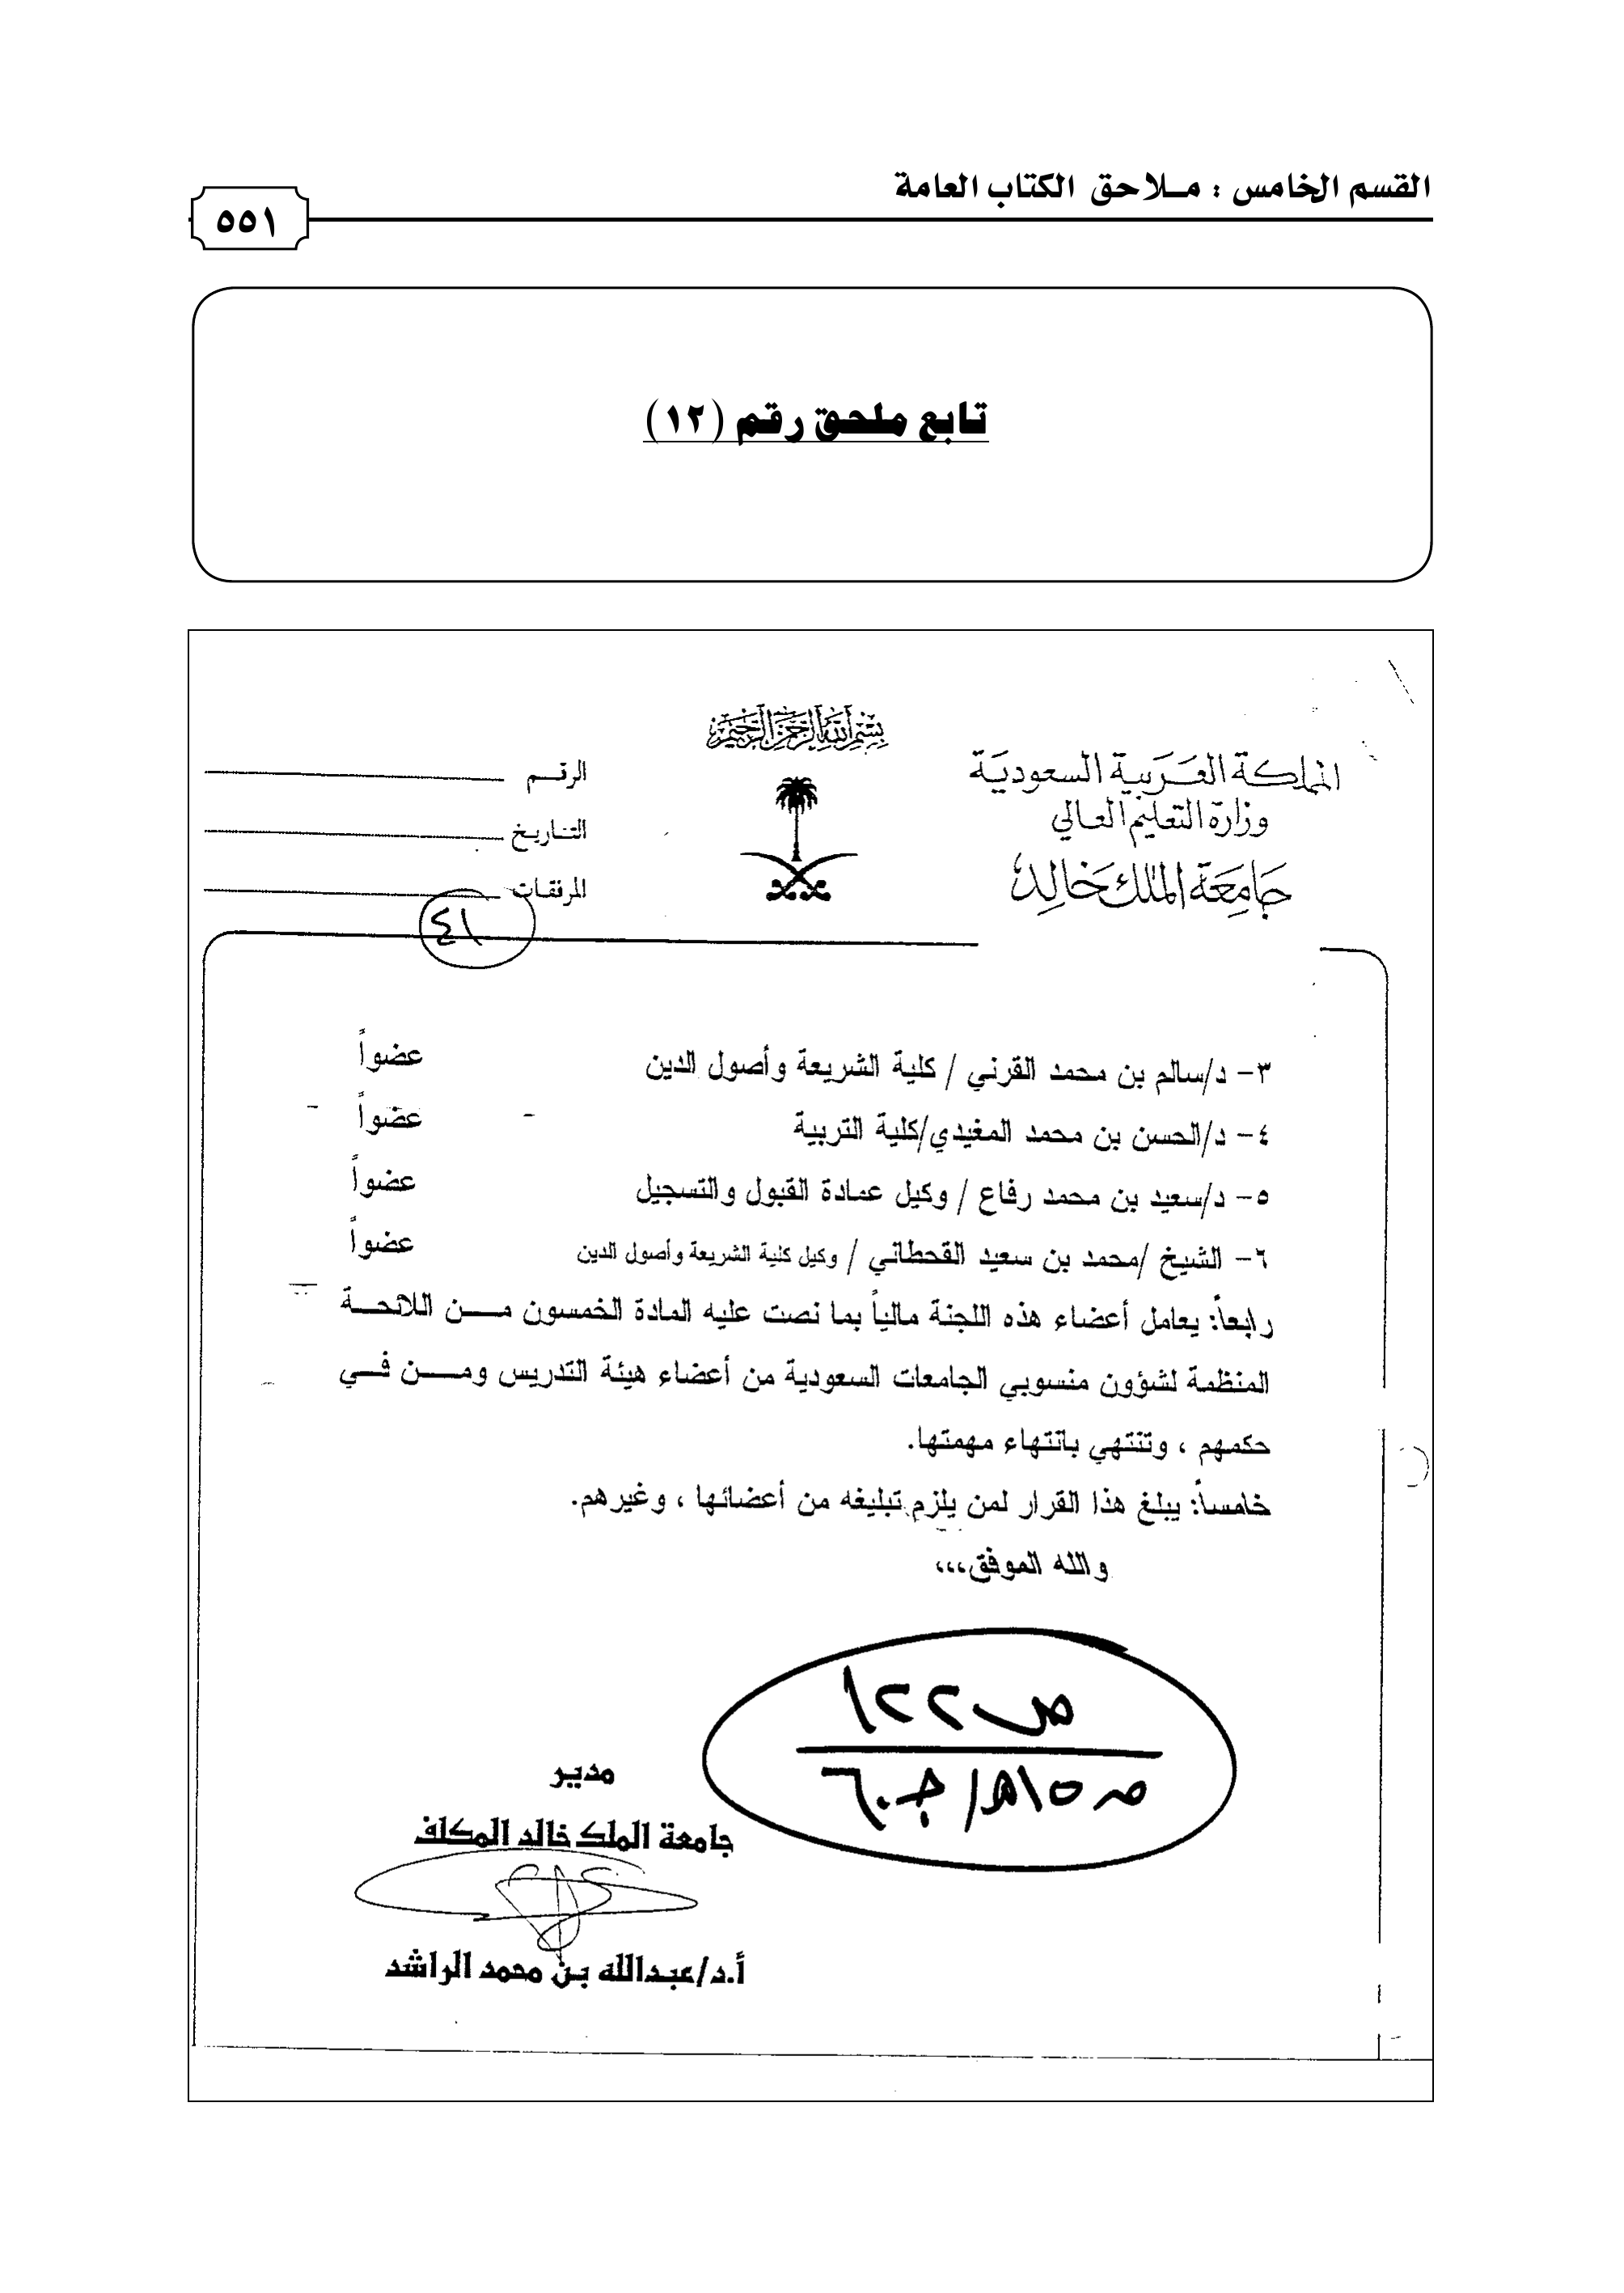 القسم الخامس : مـلاحق الكتاب العامة
٥٥١
تابع ملحق رقم (١٢)
بسم الله الرحمن الرحيم
المملكة العربية السعودية
وزارة التعليم العالي
جامعة الملك خالد
الرقـم
التاريخ
المرفقات
٤١
٣- د/سالم بن محمد القرني / كلية الشريعة وأصول الدين عضواً
٤- د/الحسن بن محمد المغيدي/كلية التربية عضواً
٥- د/سعيد بن محمد رفاع / وكيل عمادة القبول والتسجيل عضواً
٦- الشيخ /محمد بن سعيد القحطاني / وكيل كلية الشريعة وأصول الدين عضواً
رابعاً: يعامل أعضاء هذه اللجنة مالياً بما نصت عليه المادة الخمسون مـن اللائحـة
المنظمة لشؤون منسوبي الجامعات السعودية من أعضاء هيئة التدريس ومـن فـي
حكمهم ، وتنتهي بانتهاء مهمتها.
خامساً: يبلغ هذا القرار لمن يلزم تبليغه من أعضائها ، وغيرهم.
والله الموفق،،،
مدير
جامعة الملك خالد المكلف
أ.د/عبدالله بن محمد الراشد